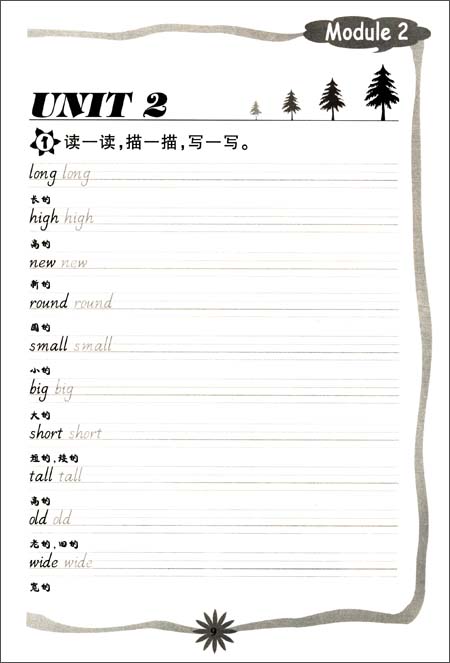 Module 2
UNIT 2
1 读一读,描一描,写一写。
long long
长的
high high
高的
new new
新的
round round
圆的
small small
小的
big big
大的
short short
短的,矮的
tall tall
高的
old old
老的,旧的
wide wide
宽的
9